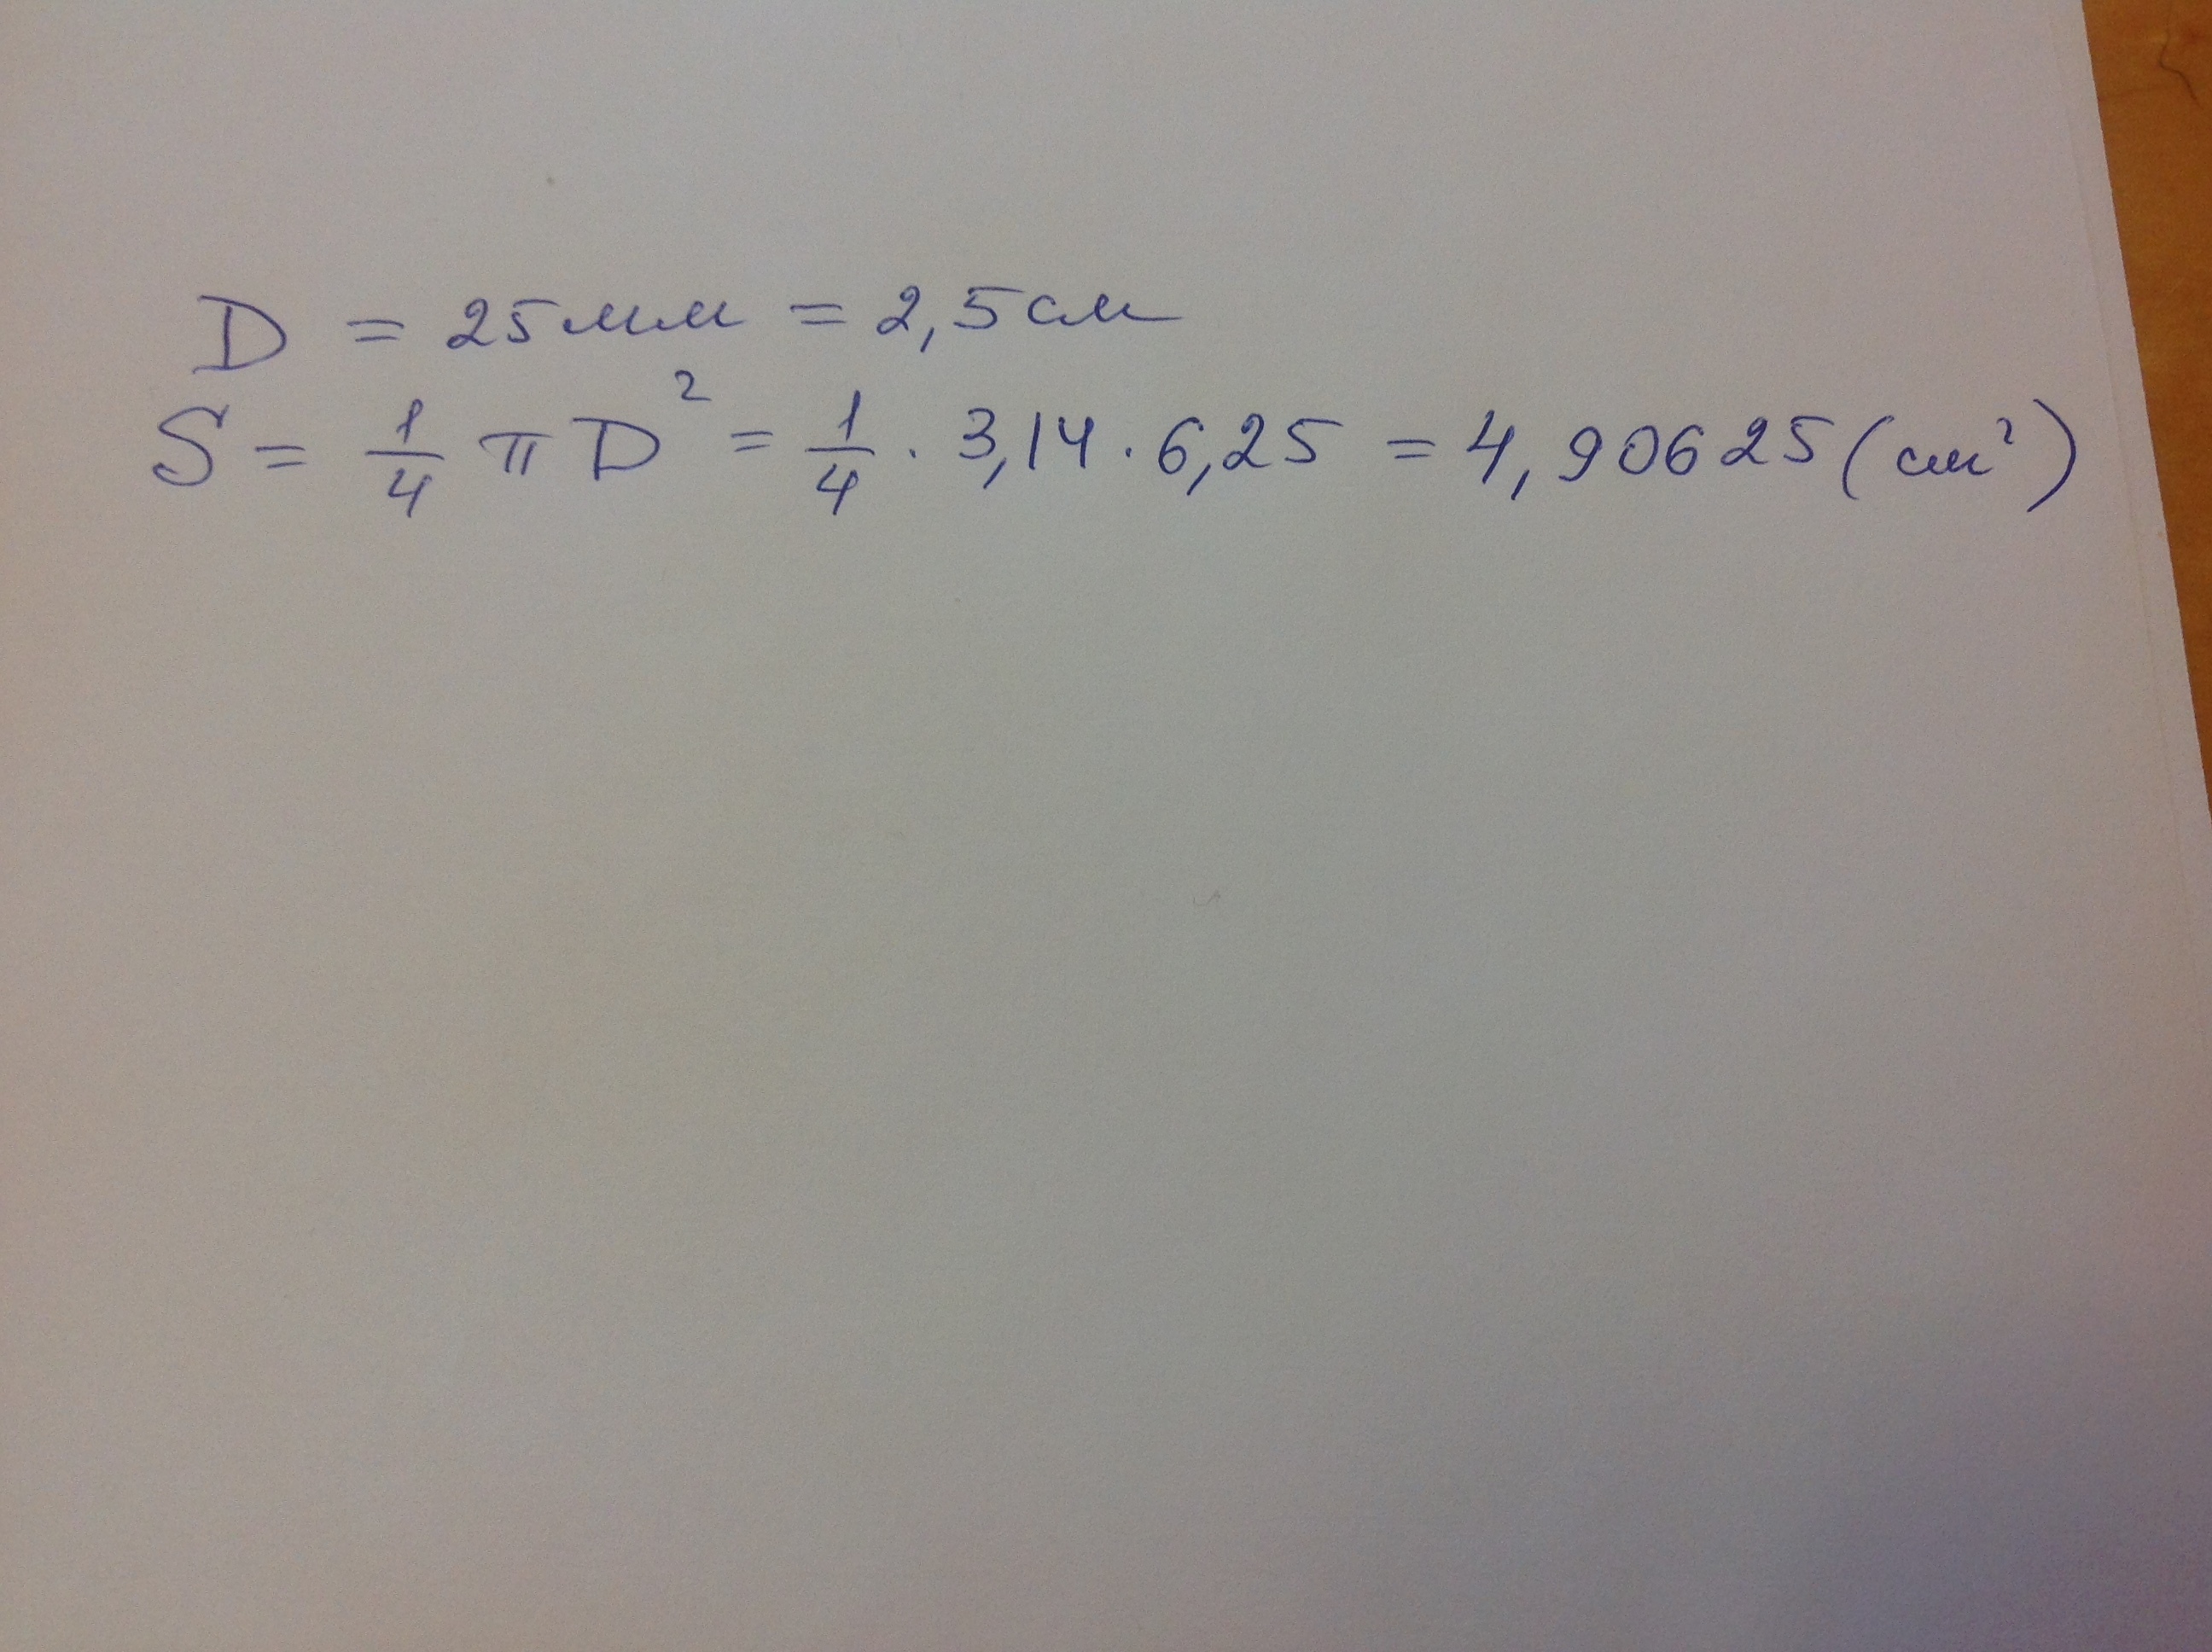 D = 25мм = 2,5см
S = 1/4 π D² = 1/4 · 3,14 · 6,25 = 4,90625 (см²)